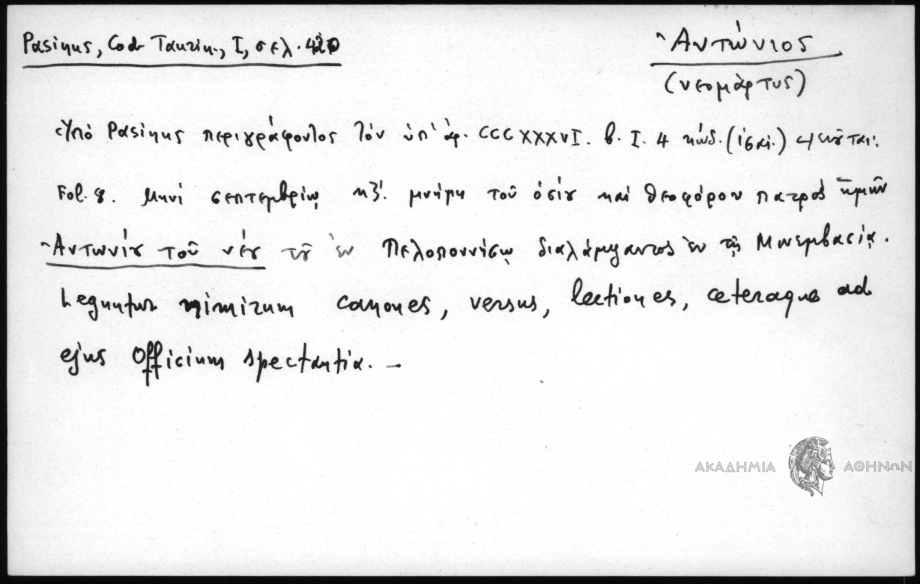 Pasinus, Cod. Taurin., I, σελ. 420
Ἀντώνιος
(νεομάρτυς)
Ὑπὸ Pasinus περιγράφοντος τὸν ὑπ' ἀρ. CCCXXXVI. b. I. 4 κώδ.
Fol. 8. Μηνὶ σεπτεμβρίῳ κζ΄. μνήμη τοῦ ὁσίου καὶ θεοφόρου πατρὸς ἡμῶν
Ἀντωνίου τοῦ νέου τοῦ ἐν Πελοποννήσῳ διαλάμψαντος ἐν τῇ Μονεμβασίᾳ.
Leguntur nimirum canones, versus, lectiones, ceteraque ad
ejus Officium spectantia. –
ΑΚΑΔΗΜΙΑ ΑΘΗΝΩΝ